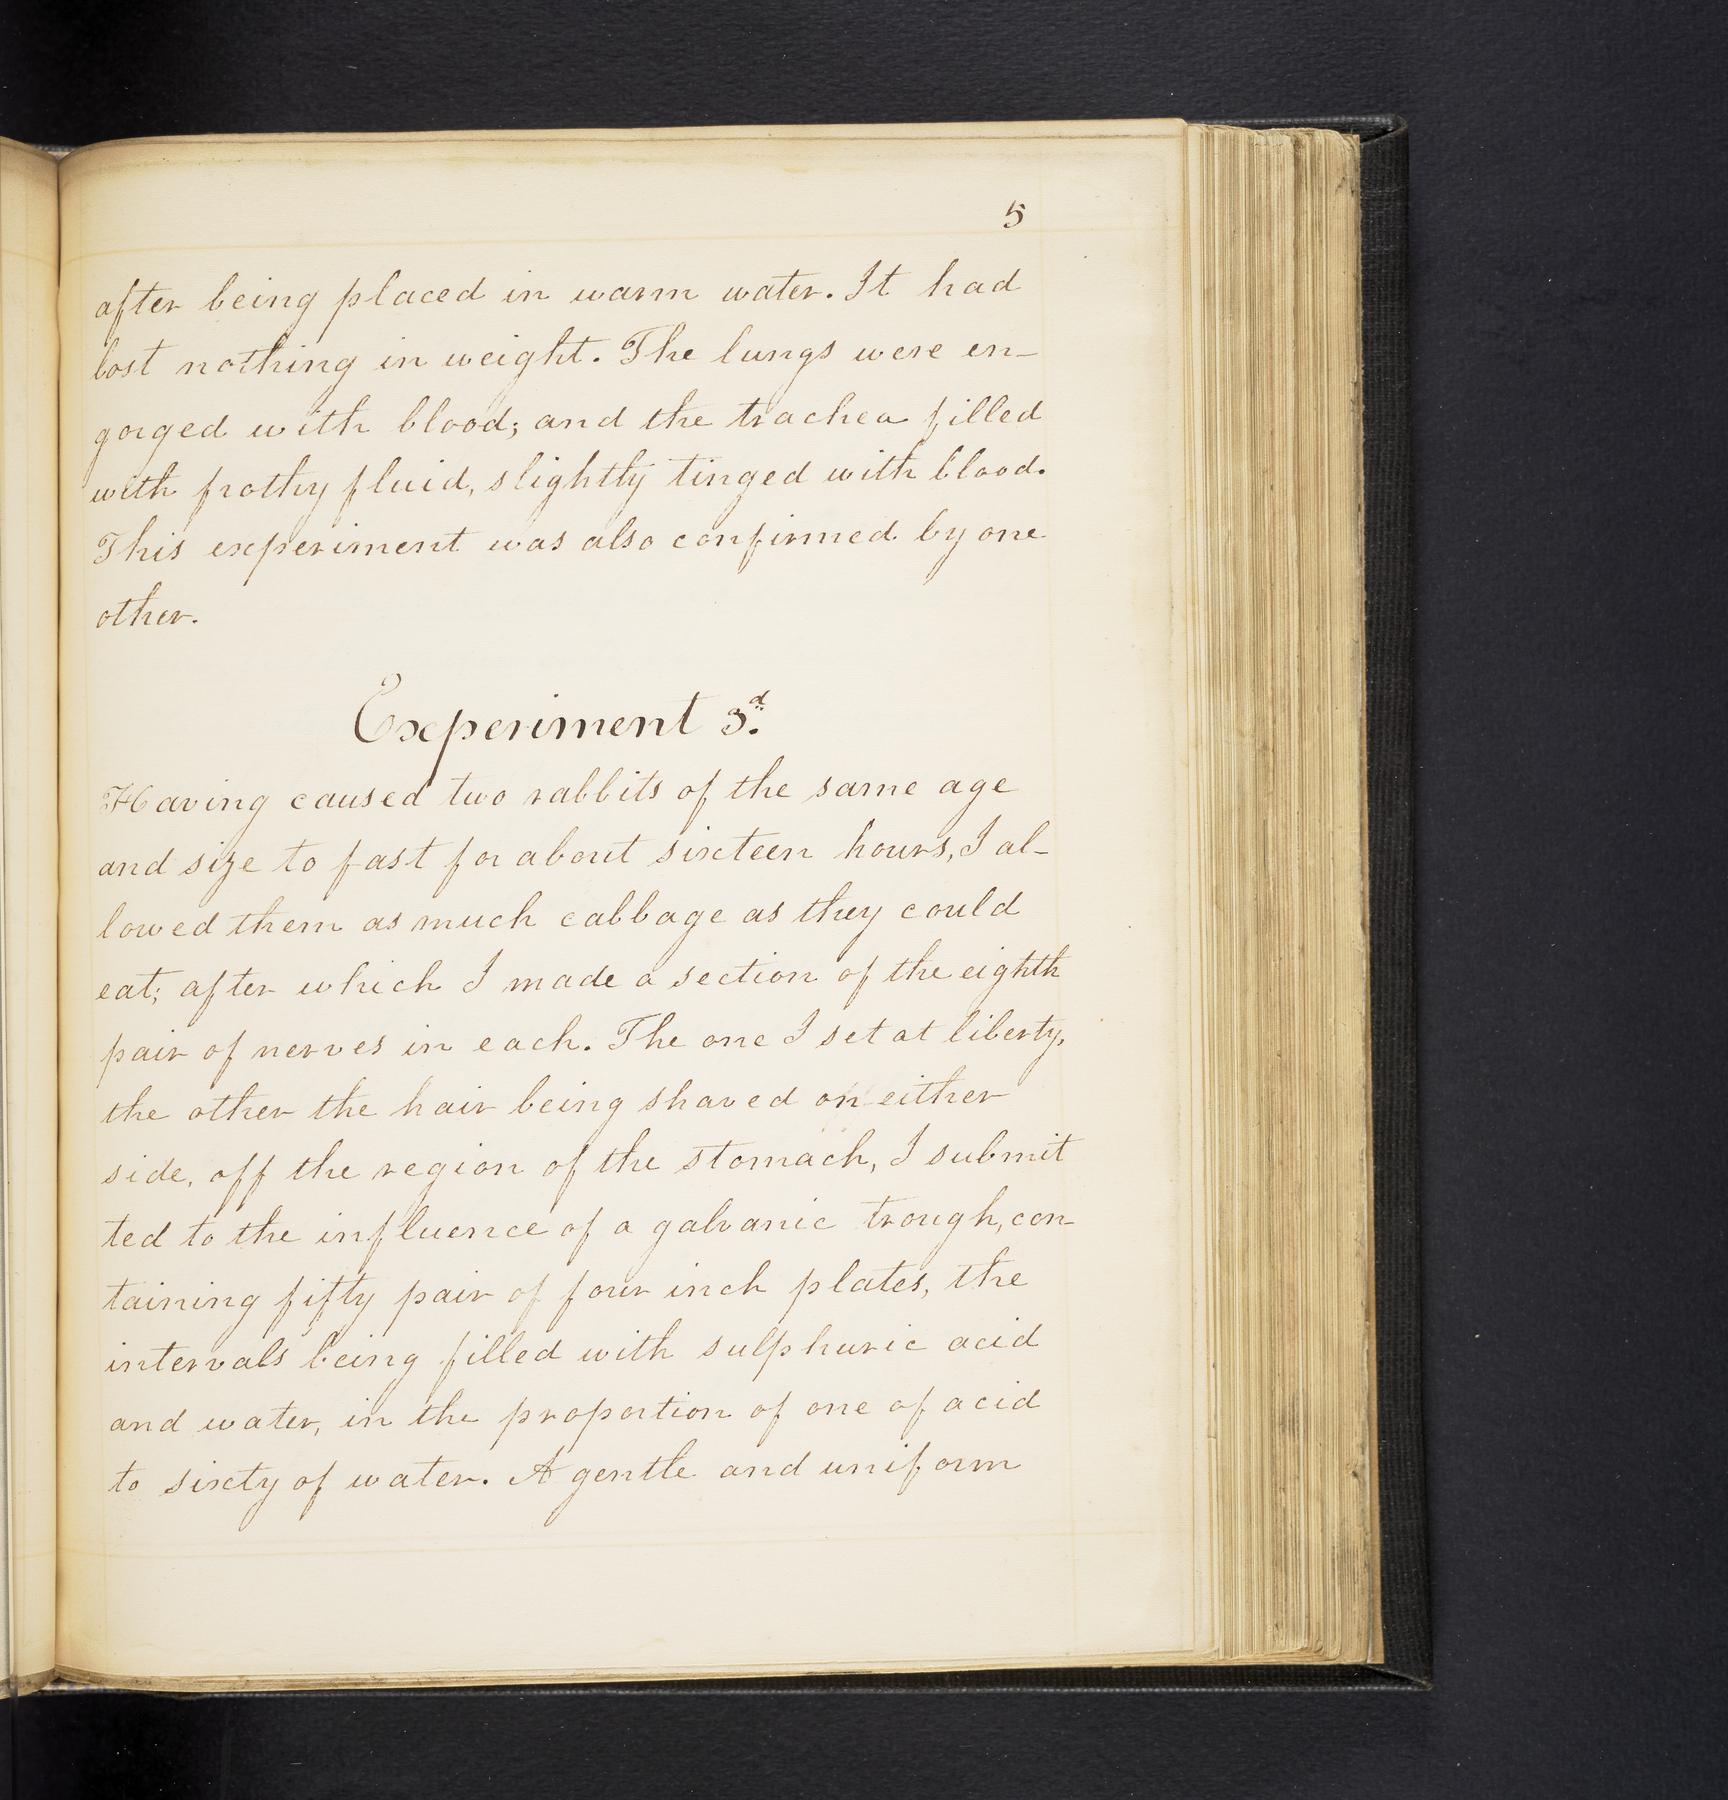 5
after being placed in warm water. It had
lost nothing in weight. The lungs were en-
gorged with blood; and the trachea filled
with frothy fluid, slightly tinged with blood.
This experiment was also confirmed by one
other.
Experiment 3d.
Having caused two rabbits of the same age
and size to fast for about sixteen hours, I al-
lowed them as much cabbage as they could
eat; after which I made a section of the eighth
pair of nerves in each. The one I set at liberty,
the other the hair being shaved on either
side, off the region of the stomach, I submit
ted to the influence of a galvanic trough, con-
taining fifty pair of four inch plates, the
intervals being filled with sulphuric acid
and water, in the proportion of one of acid
to sixty of water. A gentle and uniform